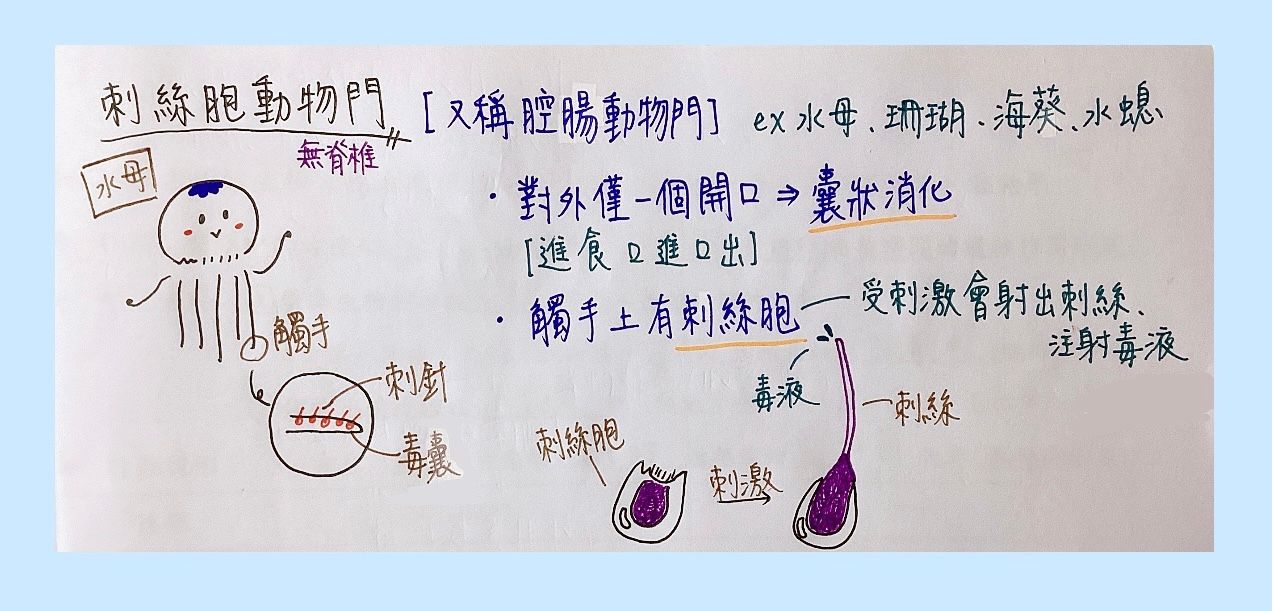 刺絲胞動物門 [又稱腔腸動物門] ex 水母、珊瑚、海葵、水螅
無脊椎
水母
・對外僅一個開口 ⇒ 囊狀消化
[進食口進口出]
・觸手上有刺絲胞 — 受刺激會射出刺絲、
注射毒液
觸手
刺針
毒囊
毒液
刺絲
刺絲胞
刺激